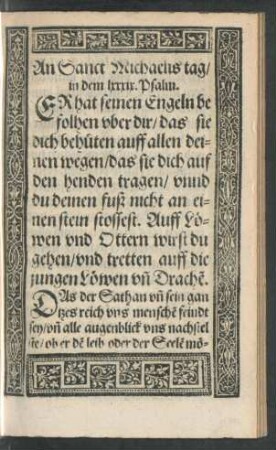 An Sanct Michaelis tag/
in dem lxxxix. Psalm.
ER hat seinen Engeln be
folhen vber dir/das sie
dich behüten auff allen dei-
nen wegen/das sie dich auf
den henden tragen/vnnd
du deinen fuß nicht an ei-
nen stein stossest. Auff Lö-
wen vnd Ottern wirst du
gehen/vnd tretten auff die
jungen Löwen vñ Drachẽ.
DAs der Sathan vñ sein gan
tzes reich vns menschẽ feindt
sey/vñ alle augenblick vns nachstel
le/ob er dẽ leib oder der Seelẽ mö-